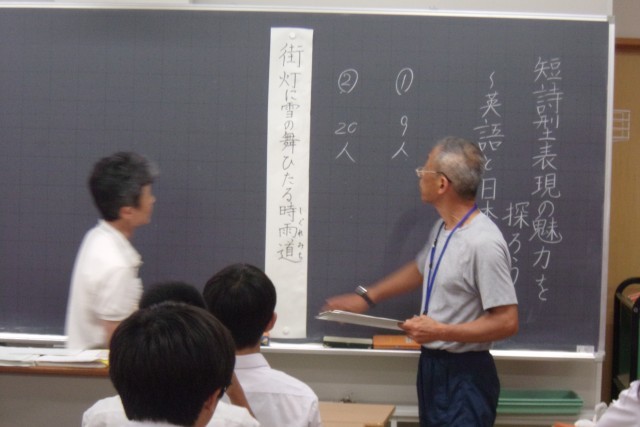 短詩型表現の魅力を
探ろう
～英語と日本
① 9人
② 20人
街灯に雪の舞ひたる時雨道
しぐれみち